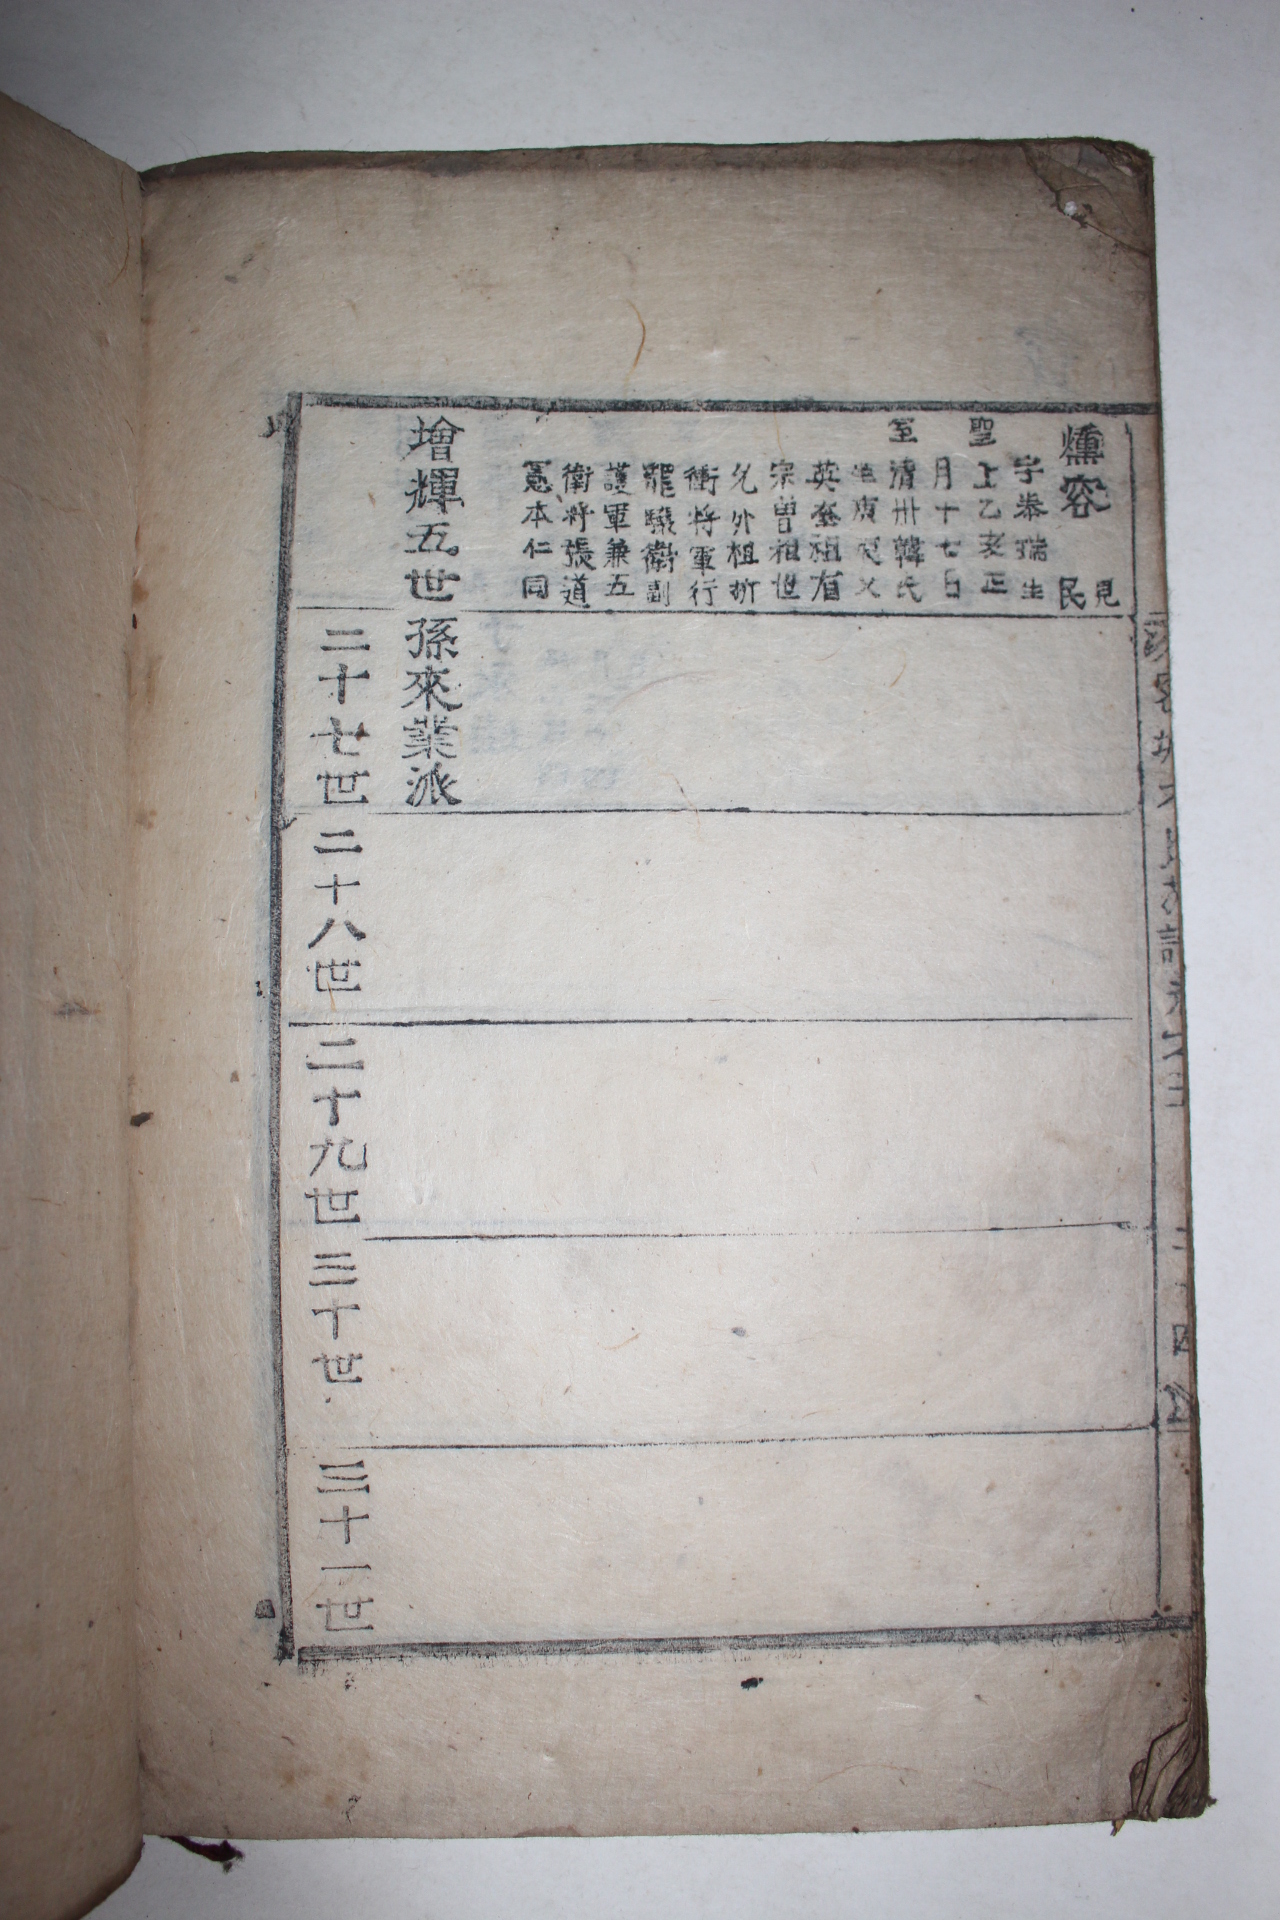 燻容
見
民
字泰瑞生
聖
上乙亥正
月十七日
室
清卅韓氏
生庚 父
英奎祖有
宗曾祖世
允外祖折
衝將軍行
龍驤衛副
護軍兼五
衛將張道
憲本仁同
增輝五世孫來業派
二十七世
二十八世
二十九世
三十世
三十一世